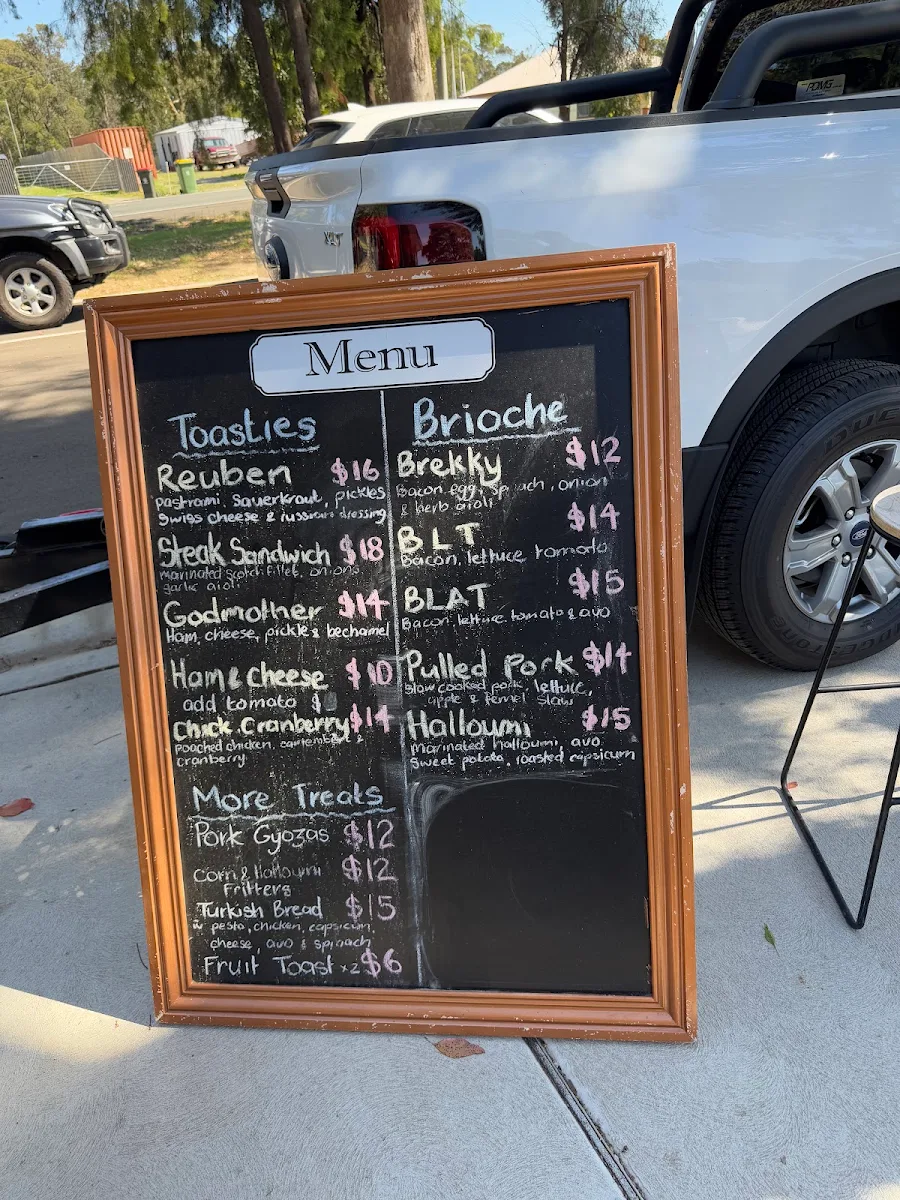 Menu
Toasties
Reuben $16
pastrami, Sauerkraut, pickles
Swiss cheese & russian dressing
Steak Sandwich $18
marinated Scotch fillet, onions
garlic aioli
Godmother $14
Ham, cheese, pickle & bechamel
Ham & Cheese $10
add tomato $
Chick. Cranberry $14
poached chicken, camembert &
cranberry
More Treats
Pork Gyozas $12
Corn & Halloumi $12
Fritters
Turkish Bread $15
w pesto, chicken, capsicum,
cheese, avo & spinach
Fruit Toast x2 $6
Brioche
Brekky $12
Bacon, egg, onion
& herb aioli
BLT $14
Bacon, lettuce, tomato
BLAT $15
Bacon, lettuce, tomato & avo
Pulled Pork $14
Slow cooked pork, lettuce,
apple & fennel slaw
Halloumi $15
marinated halloumi, avo
Sweet potato, roasted capsicum
XLT
PDMG